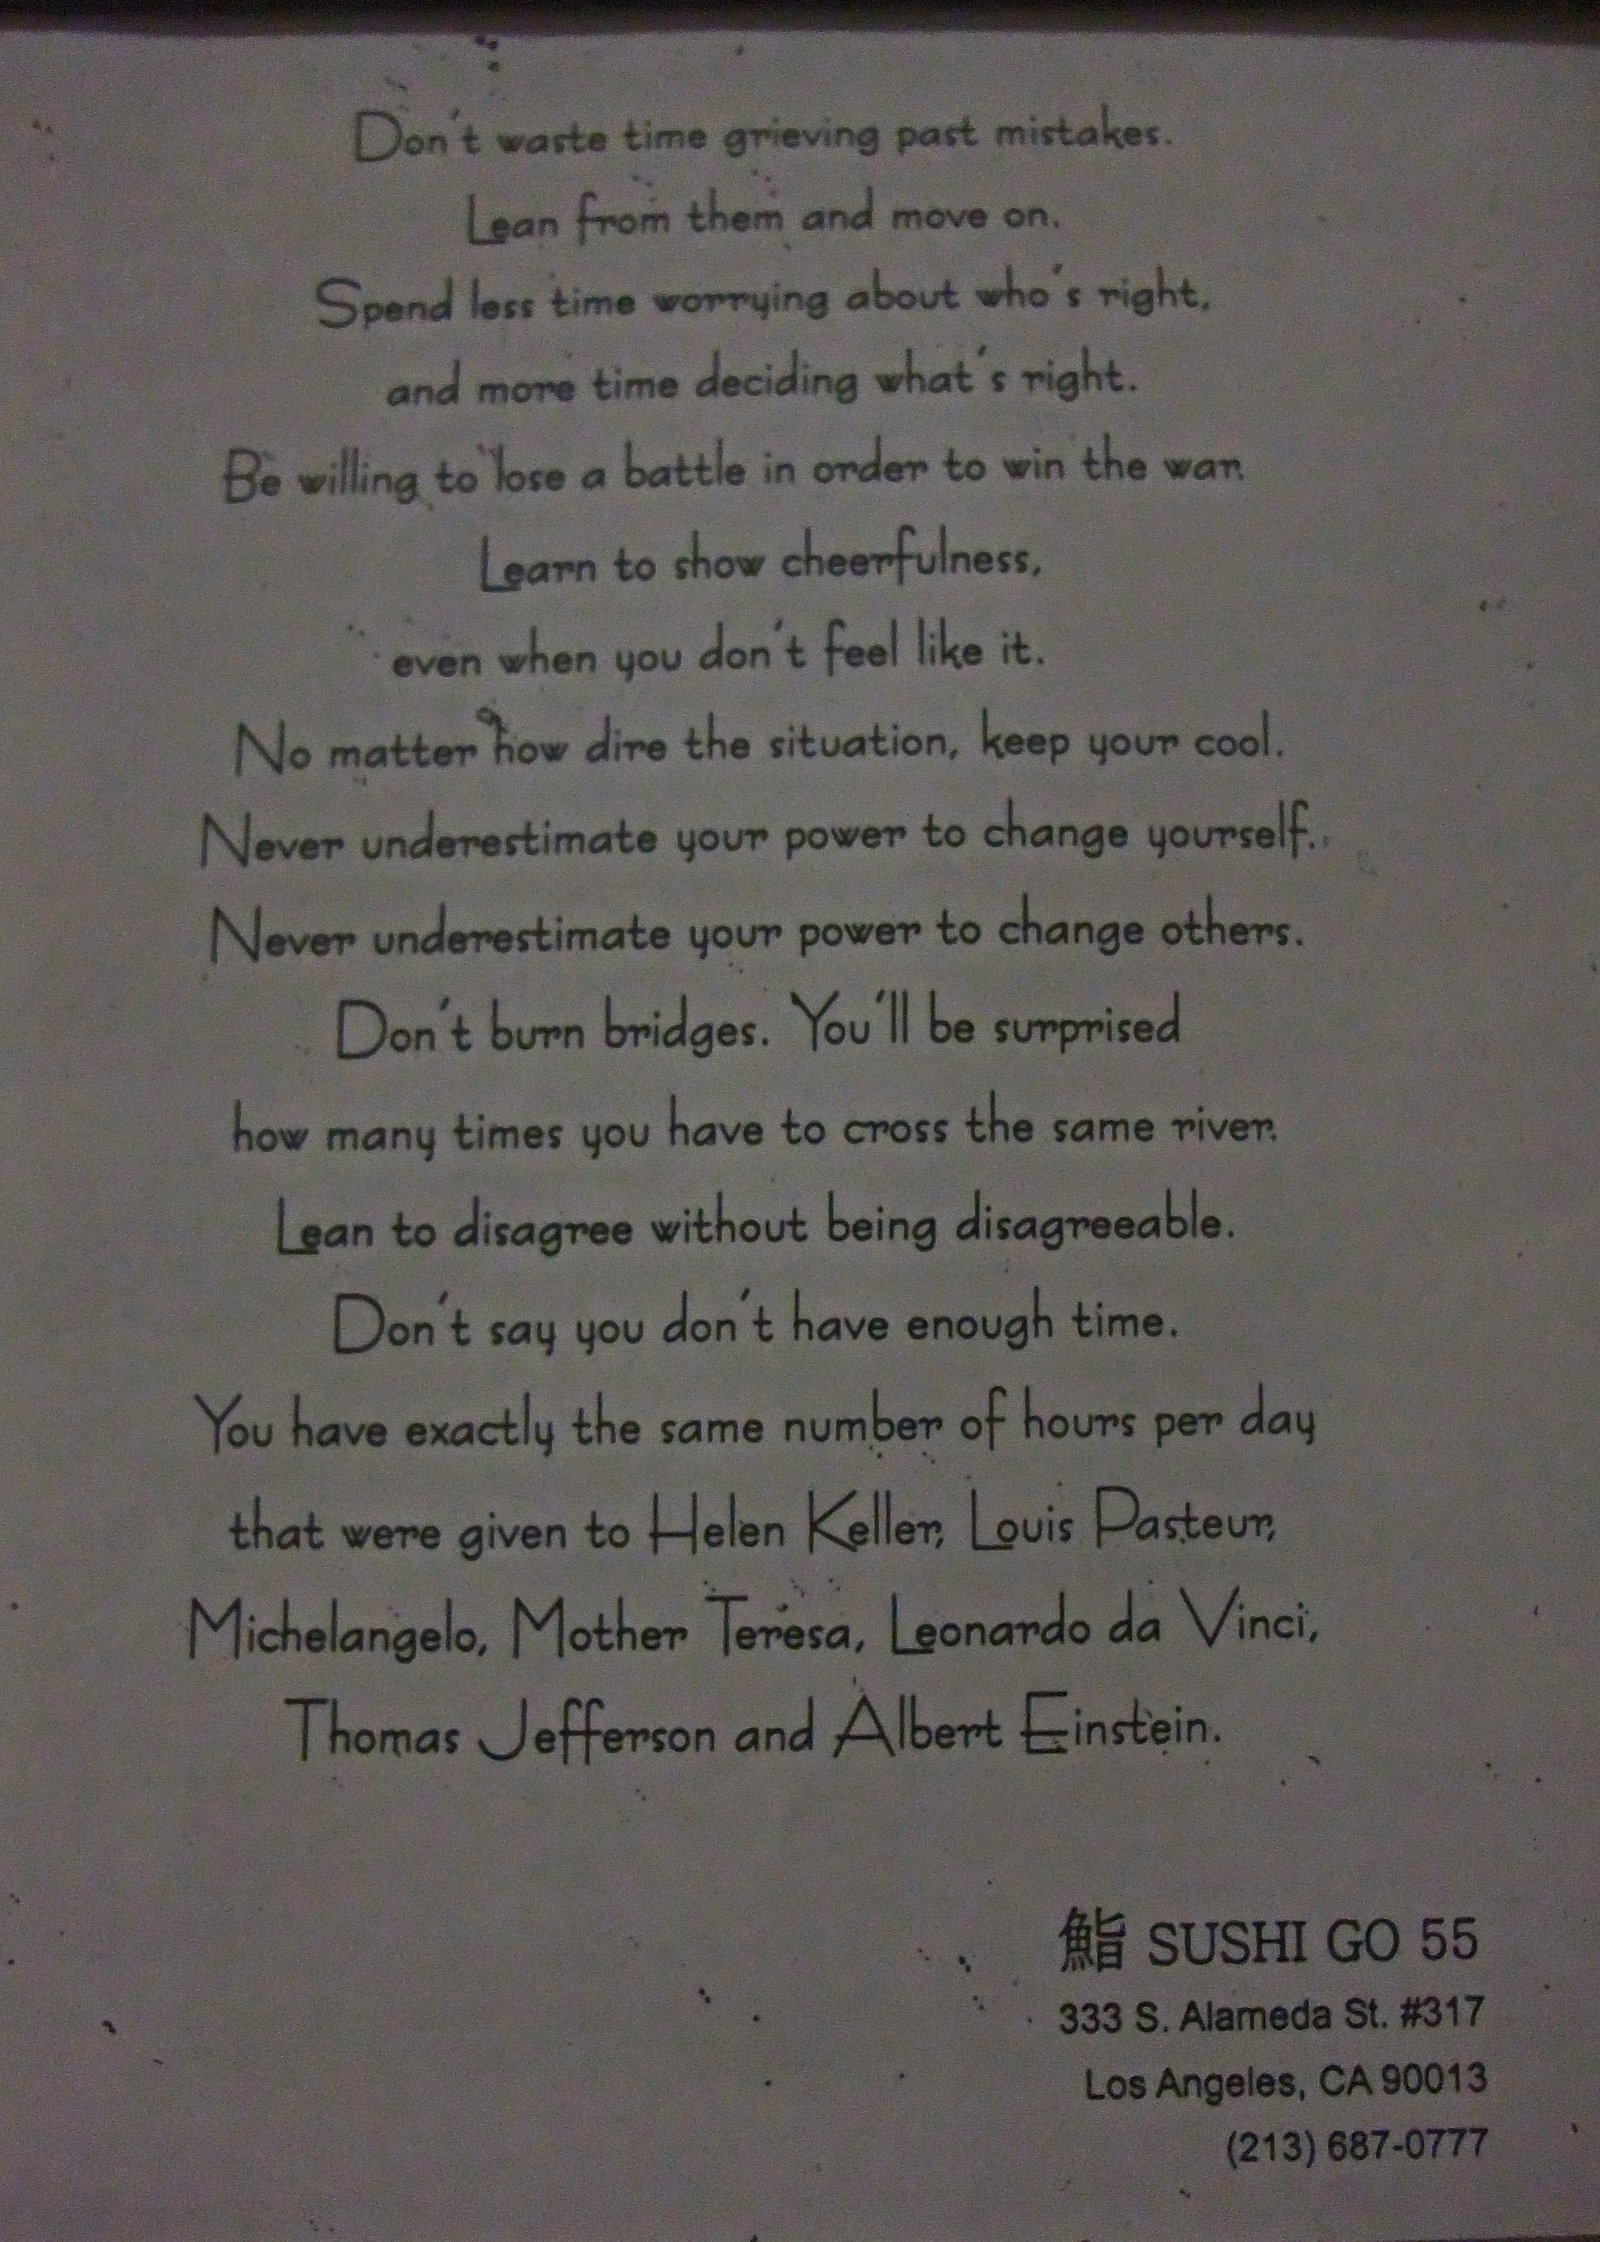 Don't waste time grieving past mistakes.
Lean from them and move on.
Spend less time worrying about who's right,
and more time deciding what's right.
Be willing to lose a battle in order to win the war.
Learn to show cheerfulness,
even when you don't feel like it.
No matter how dire the situation, keep your cool.
Never underestimate your power to change yourself.
Never underestimate your power to change others.
Don't burn bridges. You'll be surprised
how many times you have to cross the same river.
Lean to disagree without being disagreeable.
Don't say you don't have enough time.
You have exactly the same number of hours per day
that were given to Helen Keller, Louis Pasteur,
Michelangelo, Mother Teresa, Leonardo da Vinci,
Thomas Jefferson and Albert Einstein.
鮨 SUSHI GO 55
333 S. Alameda St. #317
Los Angeles, CA 90013
(213) 687-0777